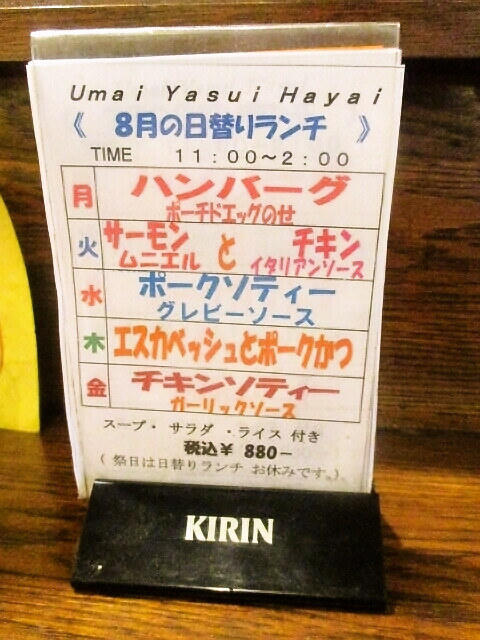 Umai Yasui Hayai
《 8月の日替りランチ 》
TIME 11:00〜2:00
月 ハンバーグ
ポーチドエッグのせ
火 サーモンムニエル と チキンイタリアンソース
水 ポークソティー
グレビーソース
木 エスカベッシュとポークかつ
金 チキンソティー
ガーリックソース
スープ・サラダ・ライス付き
税込¥ 880−
(祭日は日替りランチ お休みです。)
KIRIN